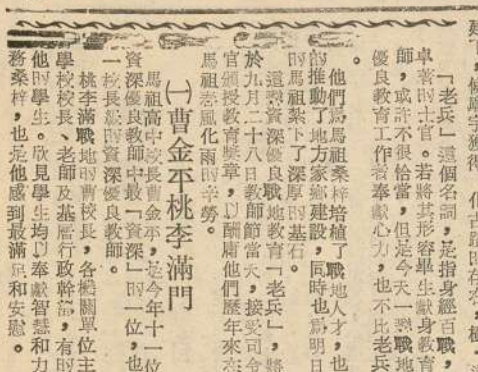 「老兵」這個名詞，是指身經百戰，
卓著的士官。若將其形容畢生獻身教育
師，或許不很恰當，但是今天一羣戰地
優良教育工作者奉獻心力，也不比老兵
。
他們爲馬祖桑梓培植了戰地人才，也
推動了地方家鄉建設，同時也爲明日
的馬祖紮下了深厚的基石。
這羣資深優良戰地教育「老兵」，將
於九月二十八日教師節當天，接受司令
官頒授教育獎章，以酬庸他們歷年來在
馬祖春風化雨的辛勞。
㈠曹金平桃李滿門
馬祖高中校長曹金平，是今年十一位
資深優良教師中最「資深」的一位，也
一校長級的資深優良教師。
桃李滿戰地的曹校長，各機關單位主
學校校長、老師及基層行政幹部，有的
他的學生。欣見學生均以奉獻智慧和力
務桑梓，也是他感到最滿足和安慰。